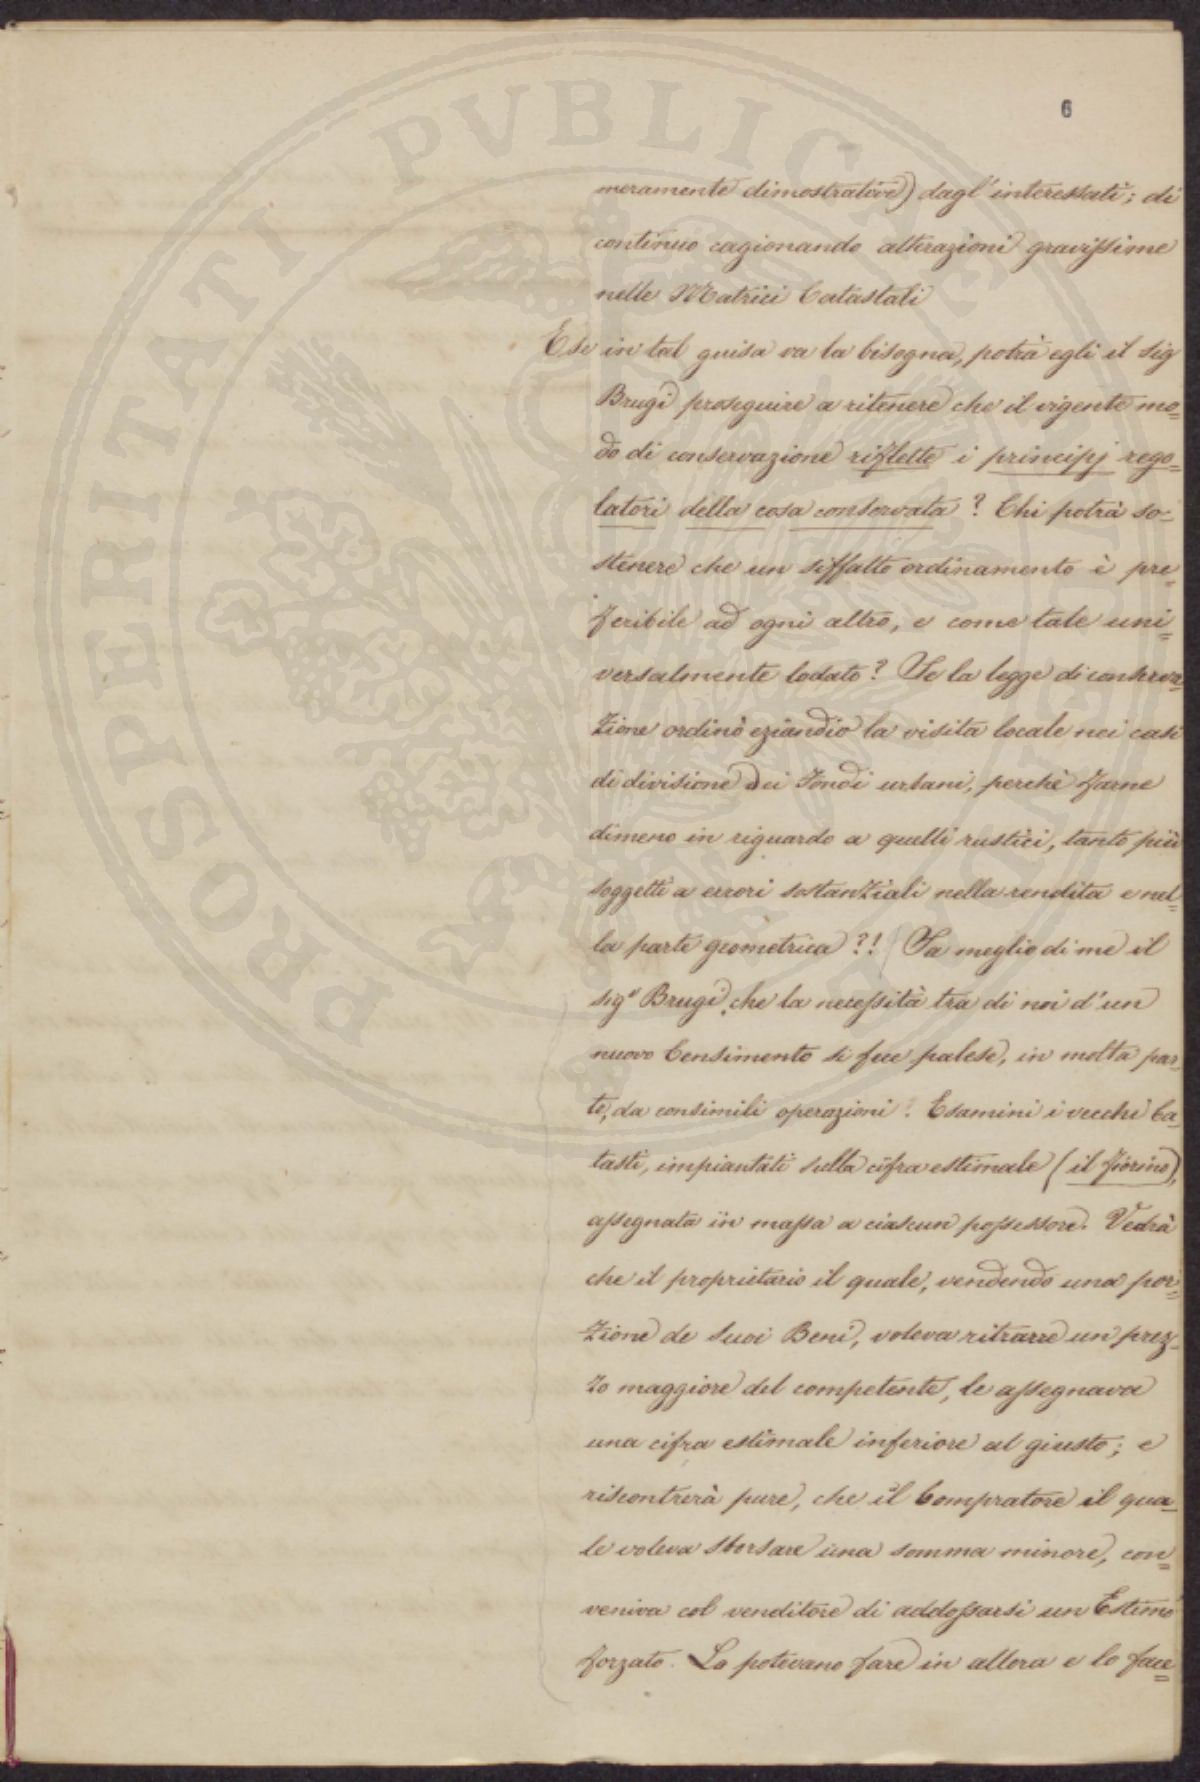 PROSPERITATI PVBLICAE AVGENDAE
6
meramente dimostrative) dagl'interessati; di
continuo cagionando alterazioni gravissime
nelle Matrici Catastali
E se in tal guisa va la bisogna, potrà egli il sig
Brugi proseguire a ritenere che il vigente mo=
do di conservazione riflette i principj rego=
latori della cosa conservata? Chi potrà so=
stenere che un siffatto ordinamento è pre=
feribile ad ogni altro, e come tale uni=
versalmente lodato? Se la legge di conserva=
zione ordinò eziandio la visita locale nei casi
di divisione dei Fondi urbani, perchè farne
dimeno in riguardo a quelli rustici, tanto più
soggetti a errori sostanziali nella rendita e nel=
la parte geometrica?! Sa meglio di me il
sigr Brugi, che la necessità tra di noi d'un
nuovo Censimento si fece palese, in molta par=
te, da consimili operazioni. Esamini i vecchi Ca=
tasti, impiantati sulla cifra estimale (il fiorino),
assegnata in massa a ciascun possessore. Vedrà
che il proprietario il quale, vendendo una por=
zione de suoi Beni, voleva ritrarre un prez=
zo maggiore del competente, le assegnava
una cifra estimale inferiore al giusto; e
riscontrerà pure, che il Compratore il qua=
le voleva sborsare una somma minore, con=
veniva col venditore di addossarsi un Estimo
forzato. Lo potevano fare in allora e lo face=